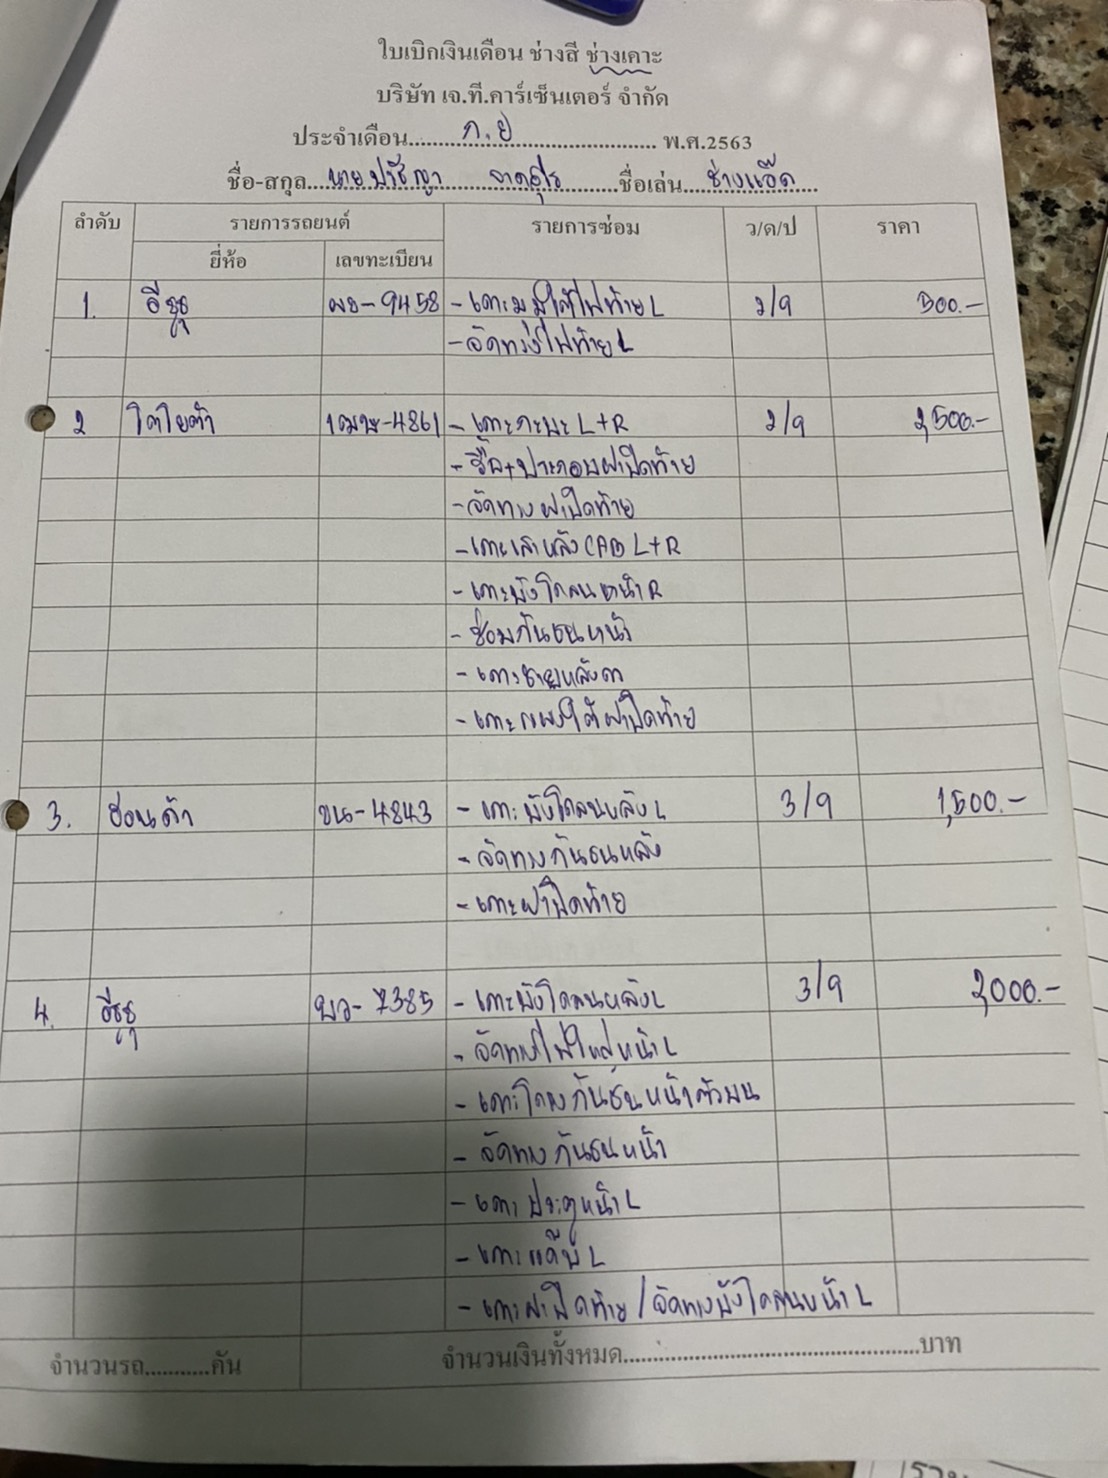 ใบเบิกเงินเดือน ช่างสี ช่างเคาะ
บริษัท เจ.ที.คาร์เซ็นเตอร์ จำกัด
ประจำเดือน ก.ย พ.ศ.2563
ชื่อ-สกุล นายปรัชญา ชื่อเล่น ช่างแอ๊ด
ลำดับ รายการรถยนต์ รายการซ่อม ว/ด/ป ราคา
ยี่ห้อ เลขทะเบียน
1. อีซูซุ ผธ-9458 - เคาะมุมใต้ไฟท้าย L 2/9 300.-
- จัดทรงไฟท้าย L
2 โตโยต้า 1ฒษ-4861 - เคาะกะบะ L+R 2/9 2,500.-
- รื้อ+ประกอบฝาปิดท้าย
- จัดทรงฝาปิดท้าย
- เคาะเสาหลัง CAB L+R
- เคาะบังโคลนหน้า R
- ซ่อมกันชนหน้า
- เคาะชายหลังคา
- เคาะแผงใต้ฝาปิดท้าย
3. ฮอนด้า ขน-4843 - เคาะบังโคลนหลัง L 3/9 1,500.-
- จัดทรงกันชนหลัง
- เคาะฝาปิดท้าย
4. อีซูซุ บว-7385 - เคาะบังโคลนหลัง L 3/9 2,000.-
- จัดทรงไฟใหญ่หน้า L
- เคาะโครงกันชนหน้าตัวบน
- จัดทรงกันชนหน้า
- เคาะประตูหน้า L
- เคาะแค๊บ L
- เคาะฝาปิดท้าย/จัดทรงบังโคลนหน้า L
จำนวนรถ...........คัน จำนวนเงินทั้งหมด..................................................บาท